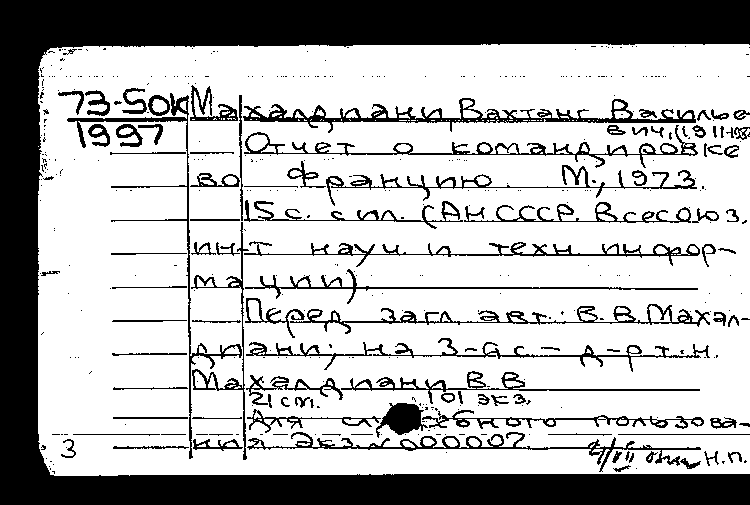 73-50к Махалдиани, Вахтанг Василье-
1997 вич, (1911-
Отчет о командировке
во Францию. М., 1973.
15 с. с ил. (АН СССР. Всесоюз.
ин-т науч. и техн. инфор-
мации).
Перед загл. авт.: В.В. Махал-
диани; на 3-й с. - д-р т.н.
Махалдиани В В
21 см. 101 экз.
Для служебного пользова-
ния Экз. № 000007
3 Н.П.